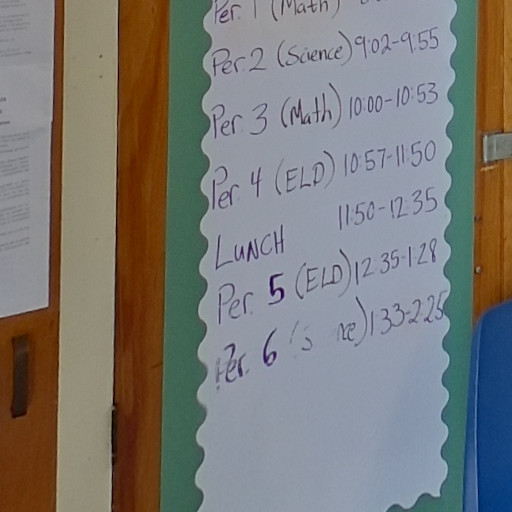 Per. 1 (Math)
Per. 2 (Science) 9:02-9:55
Per. 3 (Math) 10:00-10:53
Per. 4 (ELD) 10:57-11:50
LUNCH 11:50-12:35
Per. 5 (ELD) 12:35-1:28
Per. 6 1:33-2:25